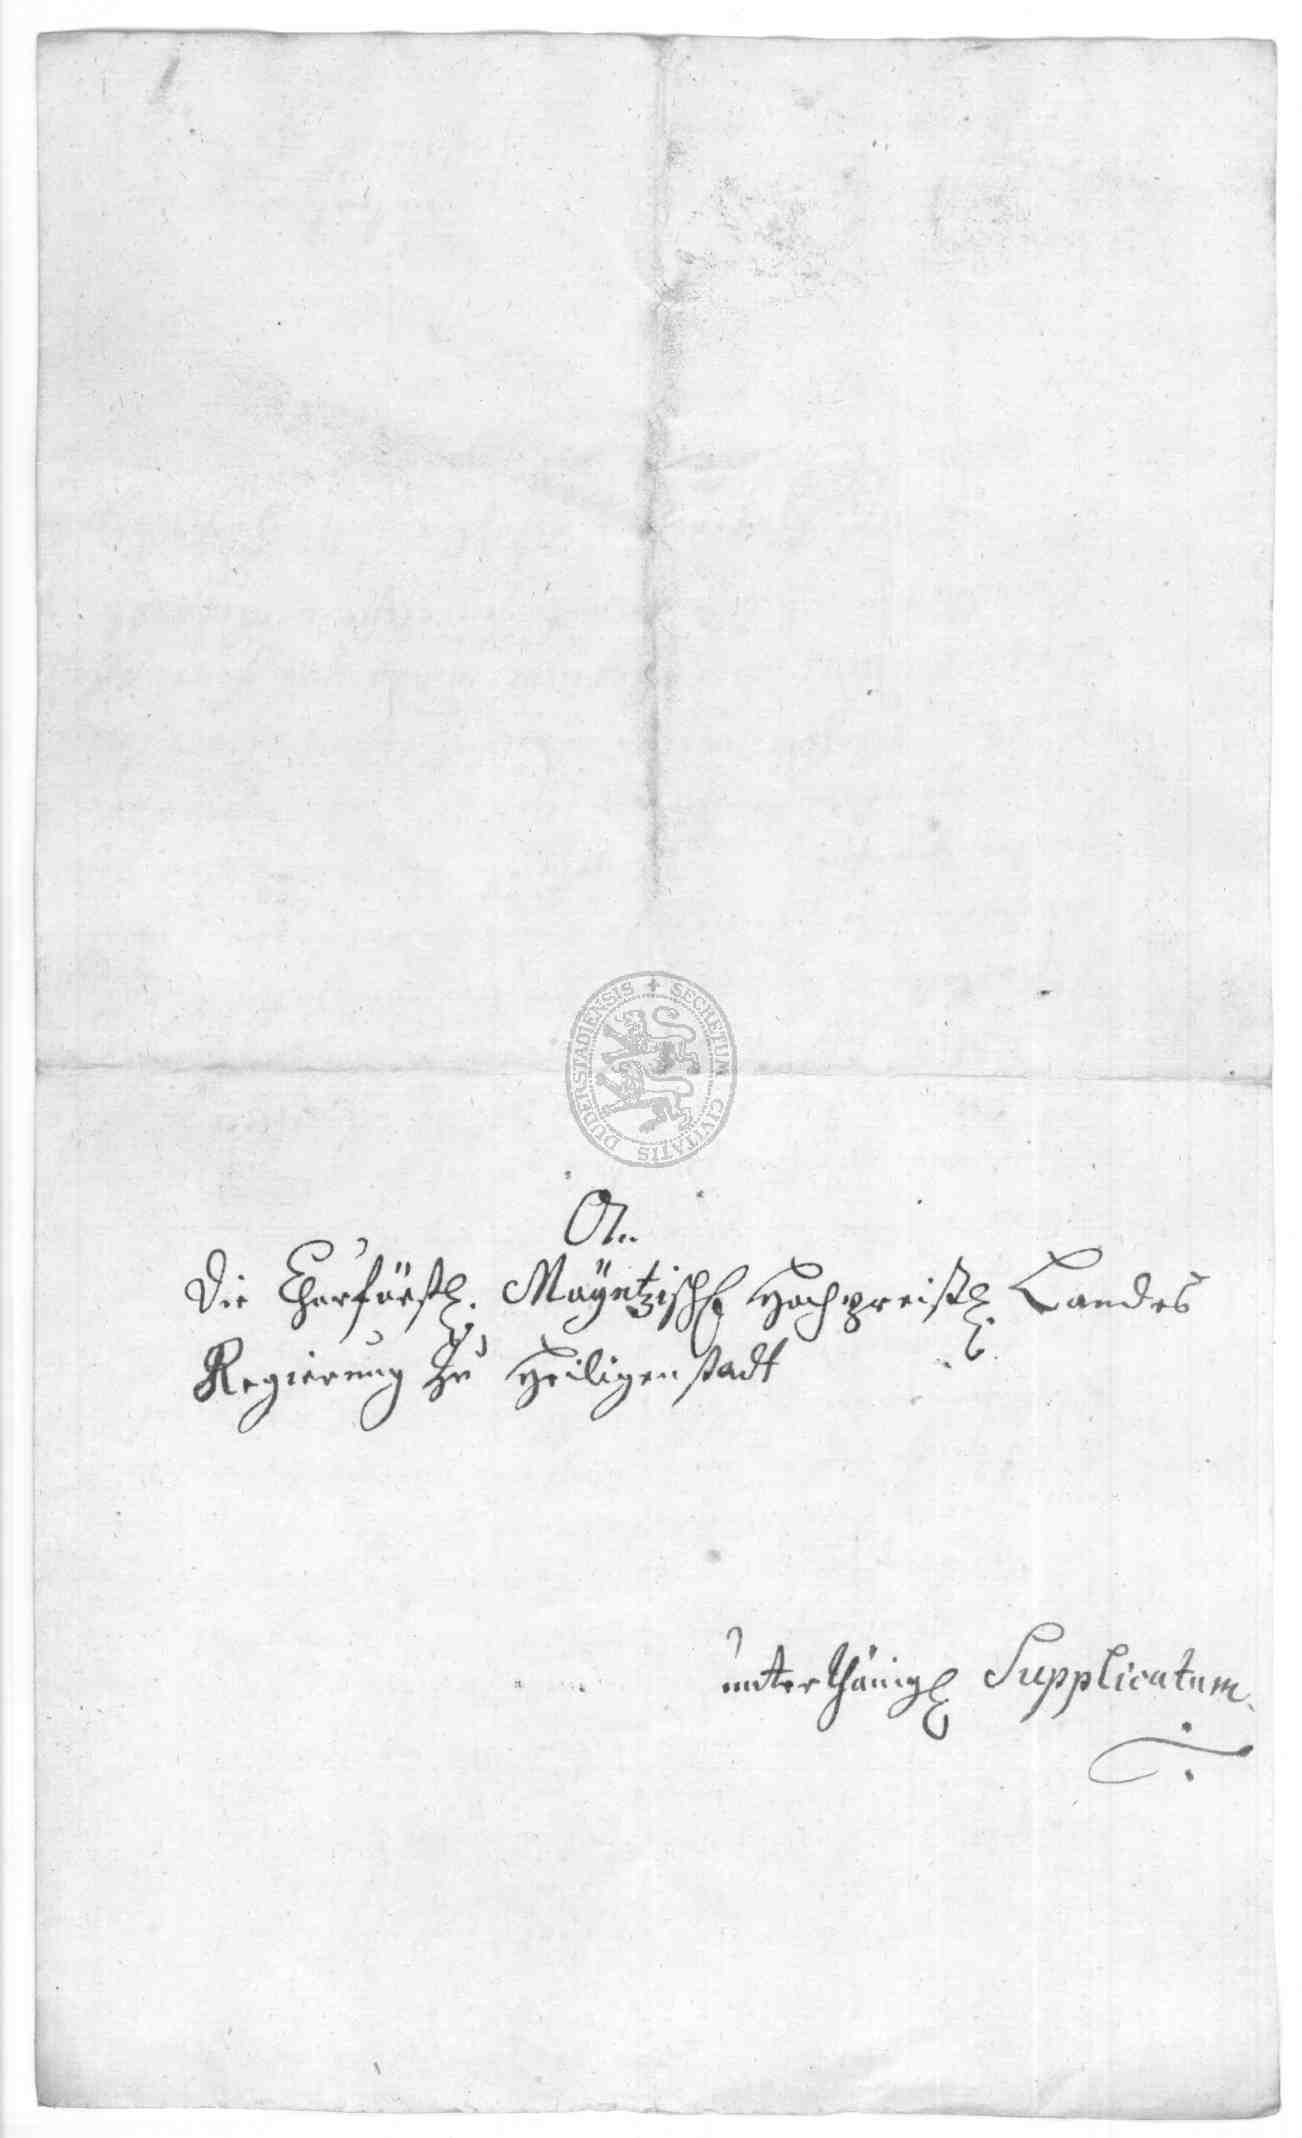 An
die Churfürstl. Mayntzische Hochpreißl. Landes
Regierung zu Heiligenstadt
SECRETUM CIVITATIS DUDERSTADIENSIS
unterthänigl Supplicatum.